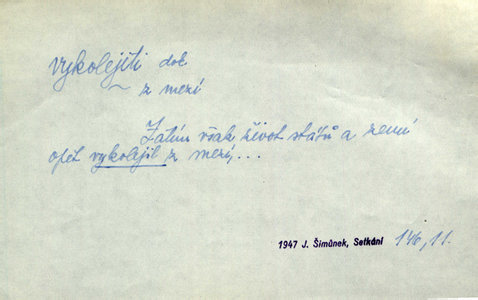 vykolejiti dok
~ z mezí
Zatím však život států a zemí
opět vykolejil z mezí,...
1947 J. Šimůnek, Setkání 146, 11.